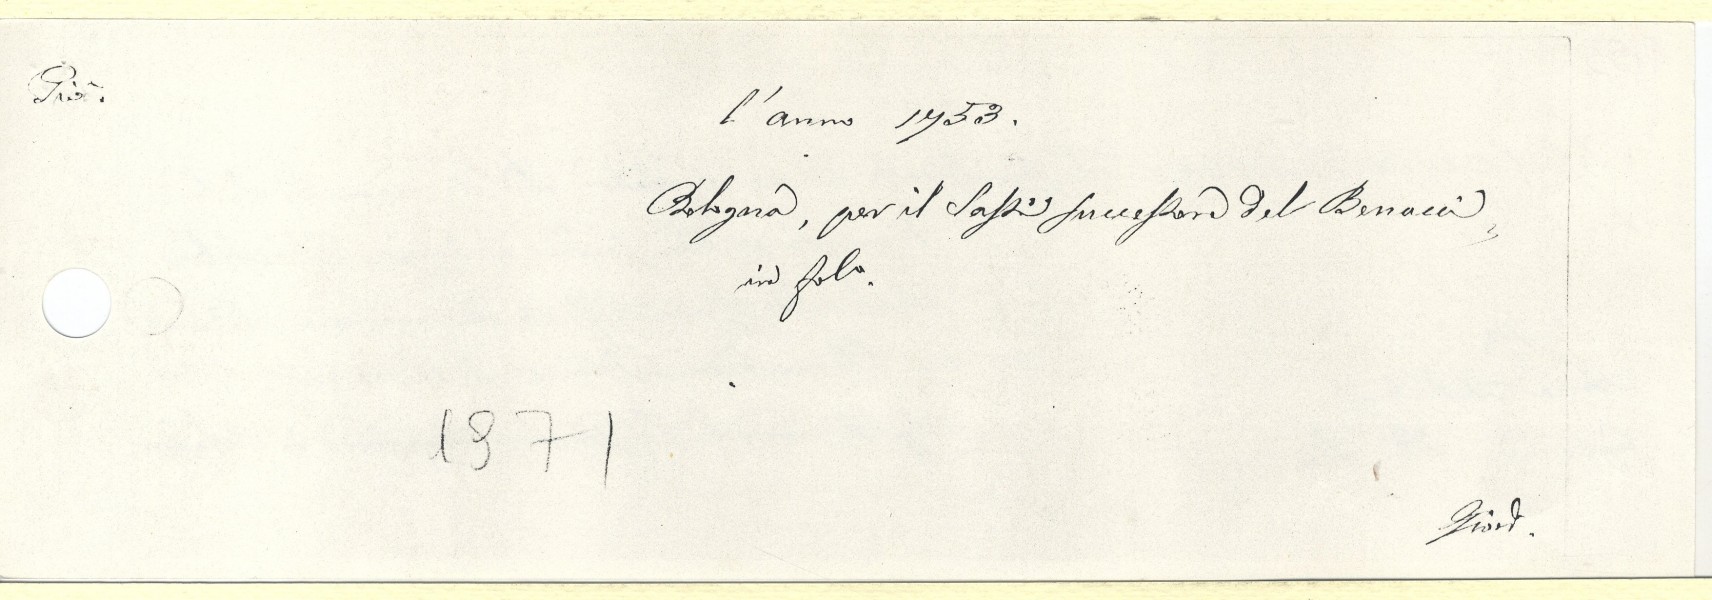 l'anno 1753.
Bologna, per il Sassi successore del Benacci,
in folo.
1371